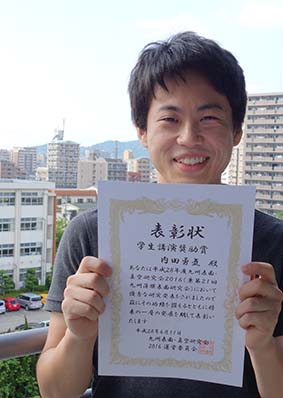 表彰状
学生講演奨励賞
内田勇気 殿
あなたは平成28年度九州表面・
真空研究会2016(兼第21回
九州薄膜表面研究会)において
優秀な研究発表をされましたので
茲にその功績を讃えるとともに将
来の一層の発展を期して表彰い
たします
平成28年6月11日
九州表面・真空研究会
2016 運営委員会